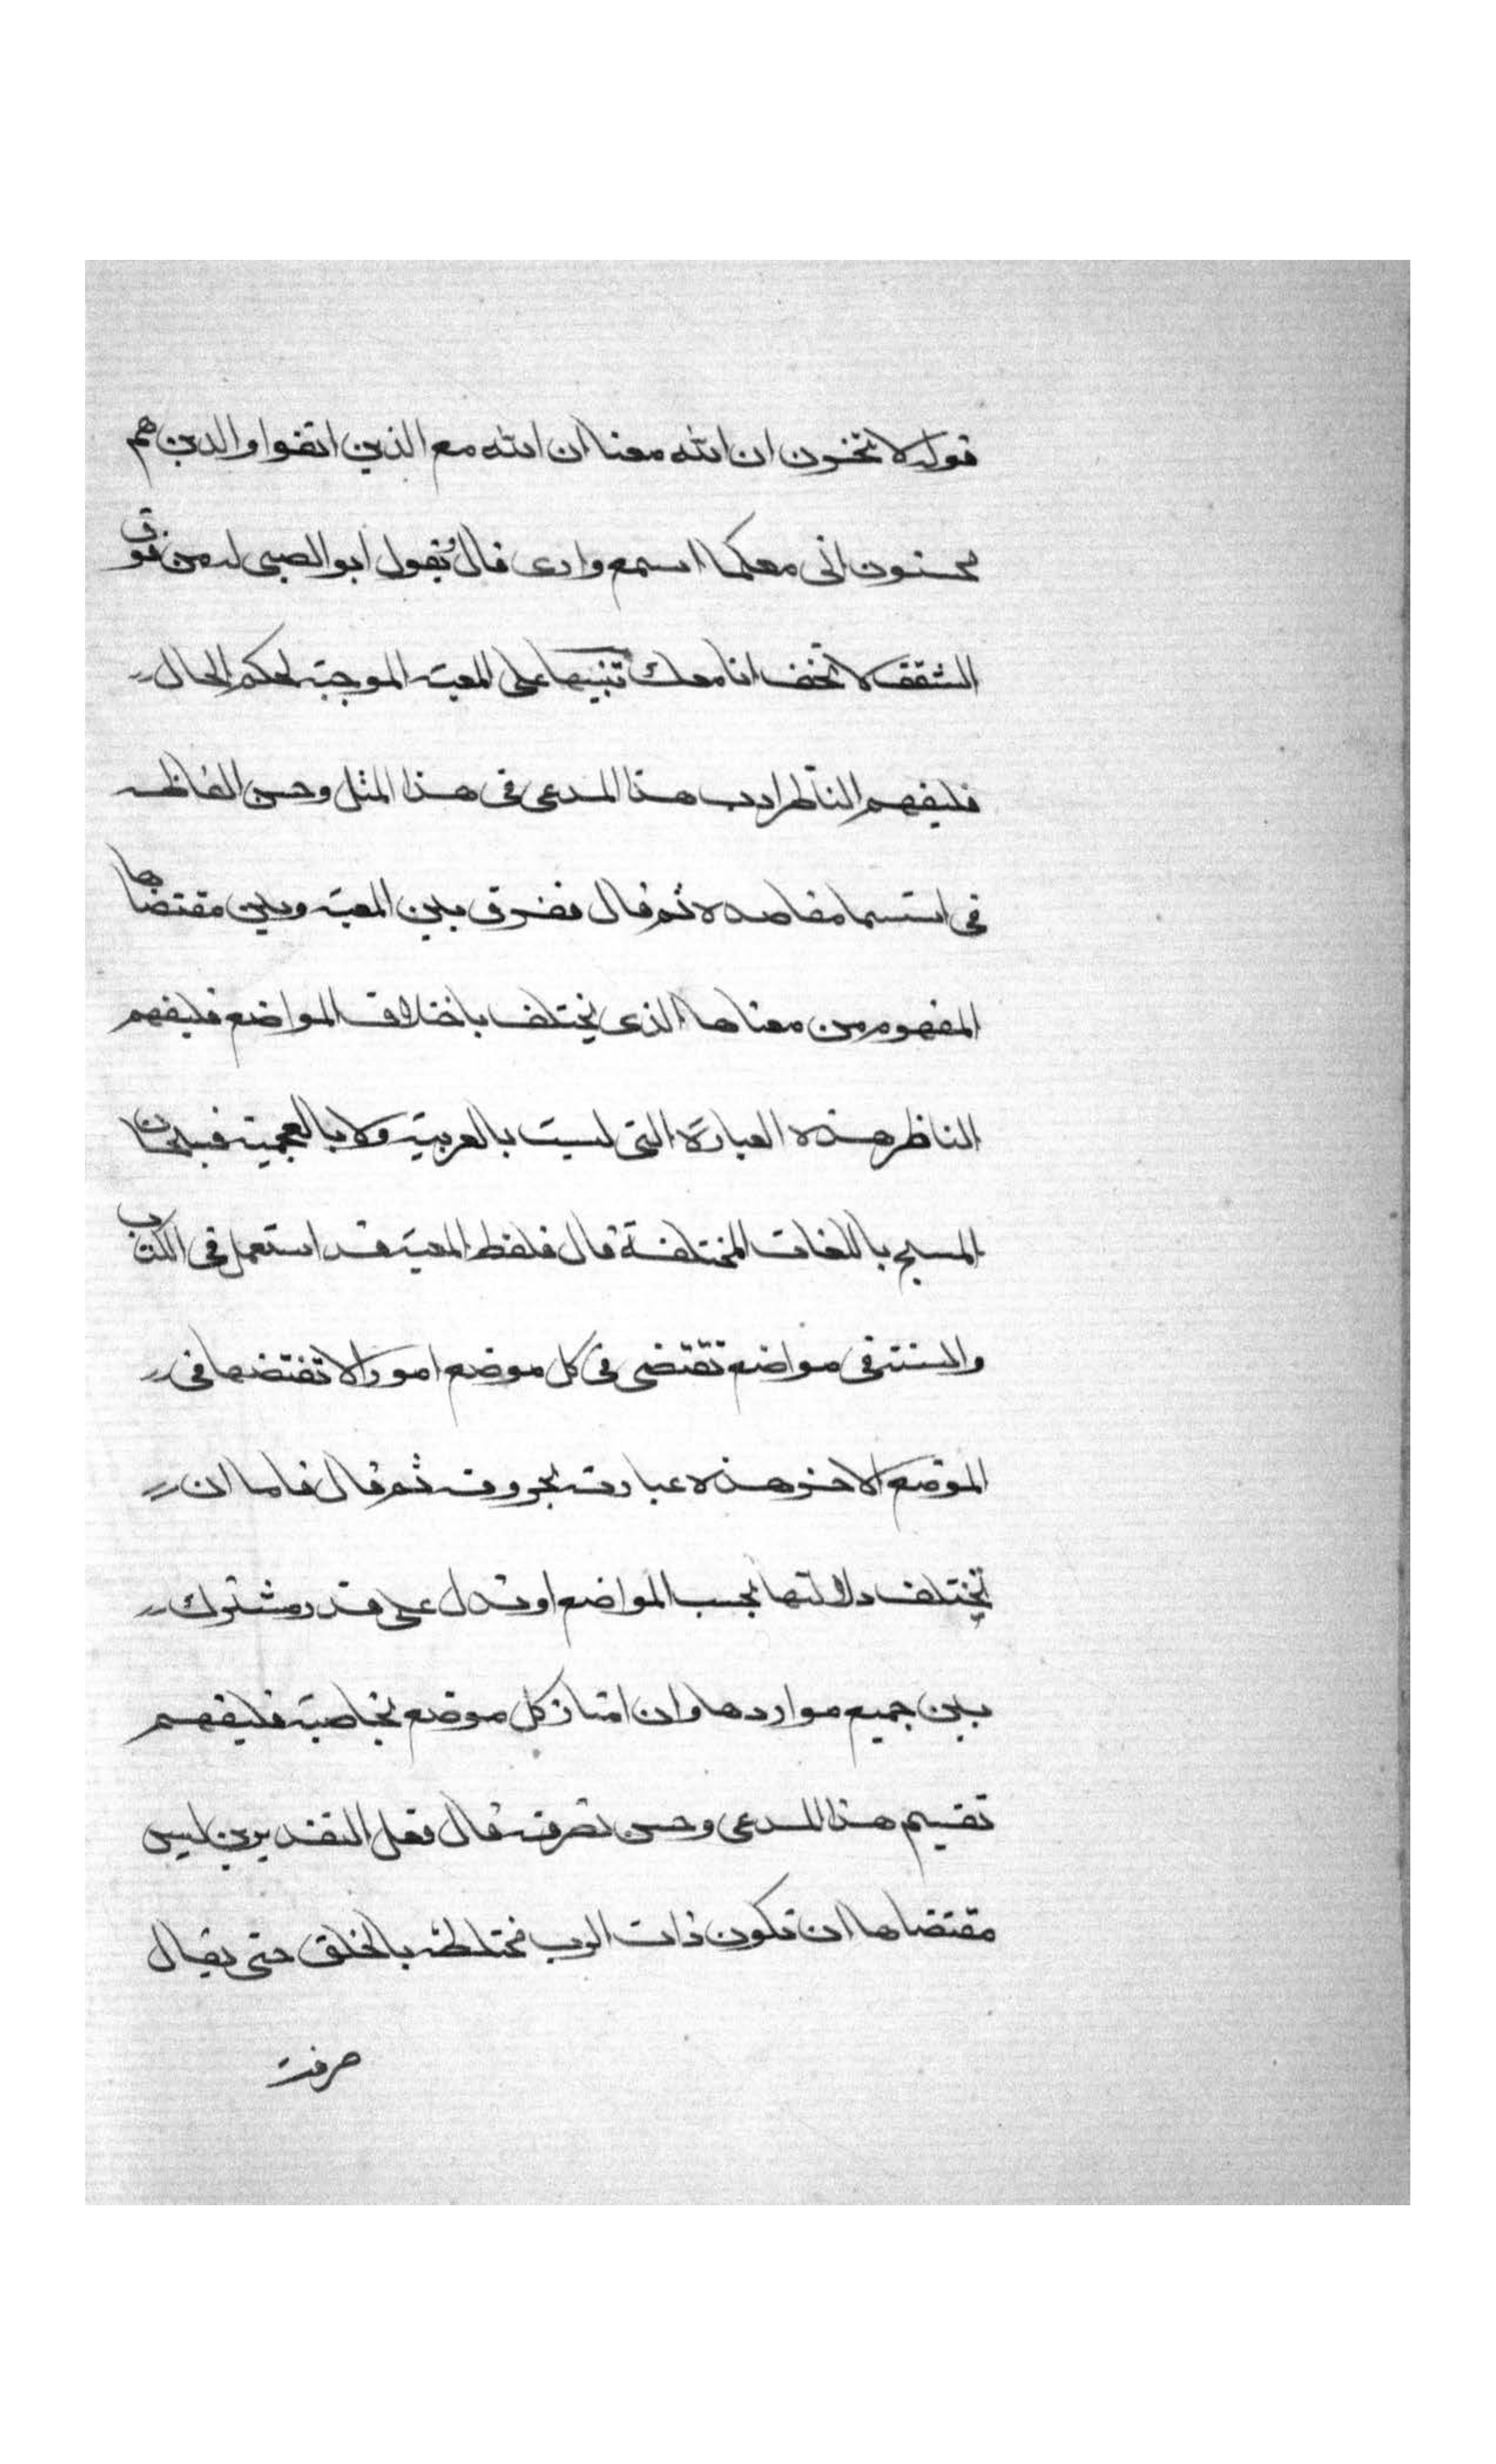 قوله لا تحزن ان الله معنا ان الله مع الذين اتقوا والذين هم
محسنون انى معكما اسمع وارى قال يقول ابو الصبى له من فوق
السقف لا تخف انا معك تنبيها على المعية الموجبة لحكم الحال
فليفهم الناظر ادب هذا المدعى فى هذا المثل وحسن الفاظه
فى مقاصده ثم قال ففرق بين المعية وبين مقتضاها
المفهوم من معناها الذى يختلف باختلاف المواضع فليفهم
الناظر هذه العبارة التى ليست بالعربية ولا بالعجمية فسبحان
المسبح باللغات المختلفة قال فلفظ المعية قد استعمل فى الكتاب
والسنة فى مواضع تقتضى فى كل موضع امورا لا تقتضيها فى
الموضع الاخر هذه عبارته بحروفه ثم قال فاما ان
تختلف دلالتها بحسب المواضع او تدل على قدر مشترك
بين جميع مواردها وان امتاز كل موضع بخاصية فليفهم
تقسيم هذا المدعى وحسن تصرفه قال فعلى التقديرين ليس
مقتضاها ان تكون ذات الرب مختلطة بالخلق حتى يقال
صرفت